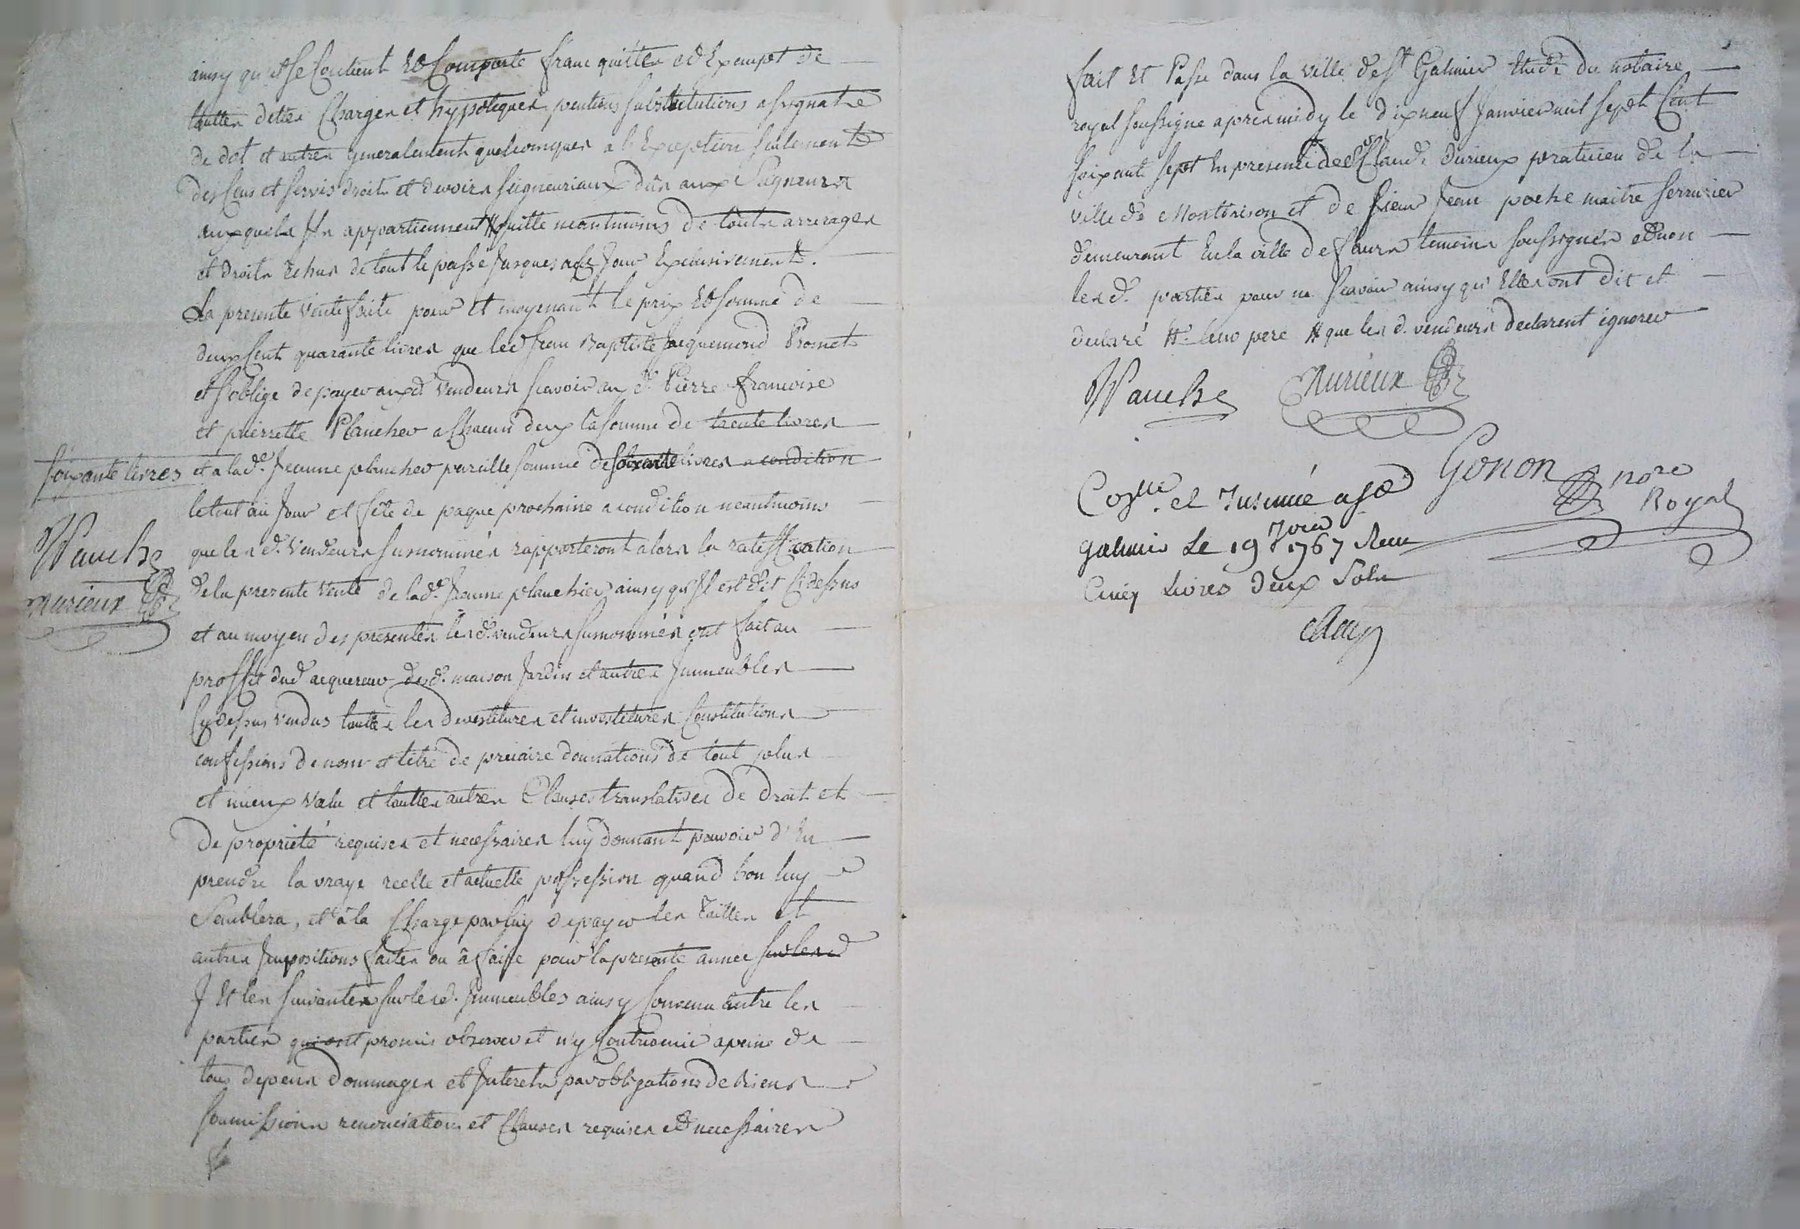 ainsy qu'il se Contient Et Comporte franc quitte et Exempt de
touttes dettes Charges et hypoteques pentions substitutions assignatte
de dot et autres generalement quelconques a l'Exception seulement
des Cens et servis droits et devoirs seigneuriaux dûs aux Seigneurs
auxquels Jls appartiennent # quitte neantmoins de touts arrerages
et droits Echus de tout le passé Jusques a Ce Jour Exclusivement.
La presente Vente faite pour Et moyenant le prix Et somme de
deux Cent quarante livres que led. Jean Baptiste Jacquemond Promet
et s'oblige de payer auxd. Vendeurs scavoir au d. Pierre francoise
et pierrette Plancher a Chacun deux la somme de trente livres
soixante livres
et a lad.e Jeanne plancher pareille somme de soixante livres a condition
le tout au Jour et fête de paque prochaine a condition neantmoins
que les d. Vendeurs susnommés rapporteront alors la ratiffication
Vauche
Durieux
de la presente Vente de lad.e Jeanne plancher ainsy qu'Jl est dit Cy dessus
et au moyen des presentes les d. vendeurs susnommés ont fait au
proffit dud. acquereur desd. maison Jardin et autres Jmmeubles
Cy dessus Vendus touttes les devestitures et investitures Constitutions
confessions de nom et titre de precaire donnations de tout plus
et mieux Value et touttes autres Clauses translatives de droit et
de propriété requises et necessaires luy donnant pouvoir d'En
prendre la vraye reelle et actuelle possession quand bon luy
Semblera, et à la Charge par luy de payer les tailles et
autres Jmpositions faites ou à faire pour la presente année sur lesd
J Et les suivantes sur lesd. Jmmeubles ainsy Convenu entre les
parties qui ont promis observer et n'y Contrevenir a peine de
tous depens dommages et Jnterets par obligations de biens
soumissions renonciations et Clauses requises et necessaires
fait Et Passé dans la Ville de St. Galmier Etude du notaire
royal soussigné apres midy le dix neuf Janvier mil sept Cent
soixante sept En presence de Sr Claude Durieux praticien de la
ville de Montbrison et de sieur Jean poche maitre serrurier
demeurant En la ville de feurs temoins soussignés et non
lesd. parties pour ne scavoir ainsy qu'Elles ont dit et
declaré # leur pere # que les d. vendeurs declarent ignorer
Vauche Durieux
Gonon nore Royal
Con.lle et Jnsinué a St
Galmier Le 19 Jvier 1767 Recu
Cinq Livres deux Sols